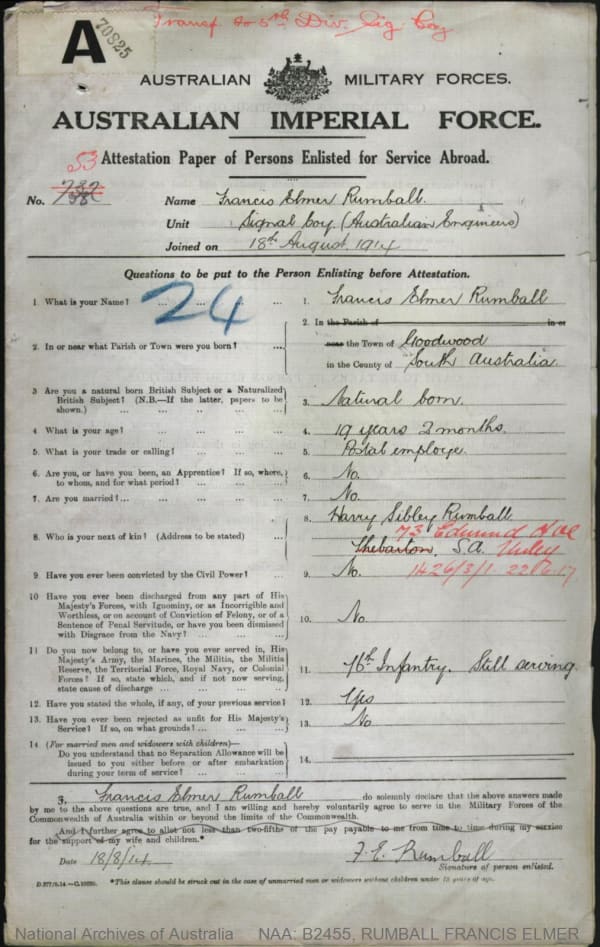 Transf. to 5th Div. Sig Coy
A
70825
AUSTRALIAN MILITARY FORCES.
AUSTRALIAN IMPERIAL FORCE.
53
Attestation Paper of Persons Enlisted for Service Abroad.
No.
Name Francis Elmer Rumball.
Unit Signal Coy. (Australian Engineers)
Joined on 18th August, 1914
Questions to be put to the Person Enlisting before Attestation.
24
1. What is your Name? ... ... ... ...
1. Francis Elmer Rumball
2. In or near what Parish or Town were you born? ...
2. In the Parish of in or
near the Town of Goodwood
in the County of South Australia
3 Are you a natural born British Subject or a Naturalized
British Subject? (N.B.—If the latter, papers to be
shown.) ... ... ... ... ...
3. Natural born.
4 What is your age? ... ... ... ...
4. 19 years 2 months.
5. What is your trade or calling? ... ... ...
5. Postal employe.
6. Are you, or have you been, an Apprentice? If so, where,
to whom, and for what period? ... ... ...
6. No.
7. Are you married? ... ... ... ...
7. No.
8. Who is your next of kin? (Address to be stated) ...
8 Harry Sibley Rumball.
73 Edmund Ave
Thebarton, S.A. Unley
9 Have you ever been convicted by the Civil Power? ...
9. No. 1426/3/1. 22.6.17
10 Have you ever been discharged from any part of His
Majesty's Forces, with Ignominy, or as Incorrigible and
Worthless, or on account of Conviction of Felony, or of a
Sentence of Penal Servitude, or have you been dismissed
with Disgrace from the Navy? ... ... ...
10. No
11 Do you now belong to, or have you ever served in, His
Majesty's Army, the Marines, the Militia, the Militia
Reserve, the Territorial Force, Royal Navy, or Colonial
Forces? If so, state which, and if not now serving,
state cause of discharge ... ... ... ...
11. 76th Infantry. Still serving.
12. Have you stated the whole, if any, of your previous service?
12. Yes
13. Have you ever been rejected as unfit for His Majesty's
Service? If so, on what grounds? ... ... ...
13. No
14 (For married men and widowers with children)—
Do you understand that no Separation Allowance will be
issued to you either before or after embarkation
during your term of service? ... ... ...
14.
I, Francis Elmer Rumball do solemnly declare that the above answers made
by me to the above questions are true, and I am willing and hereby voluntarily agree to serve in the Military Forces of the
Commonwealth of Australia within or beyond the limits of the Commonwealth.
And I further agree to allot not less than two-fifths of the pay payable to me from time to time during my service
for the support of my wife and children.*
Date 18/8/14
F. E. Rumball
Signature of person enlisted.
*This clause should be struck out in the case of unmarried men or widowers without children under 18 years of age.
National Archives of Australia NAA: B2455, RUMBALL FRANCIS ELMER